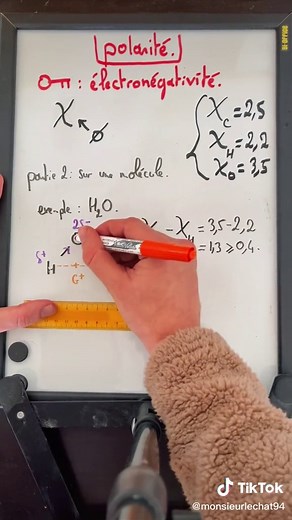 polarité.
: électronégativité.
χ
∅
χC = 2,5
χH = 2,2
χO = 3,5
partie 2: sur une molécule.
exemple : H₂O.
2δ-
χ - χH = 3,5-2,2
= 1,3 ≥ 0,4.
δ+
H
G+
TikTok
@monsieurlechat94